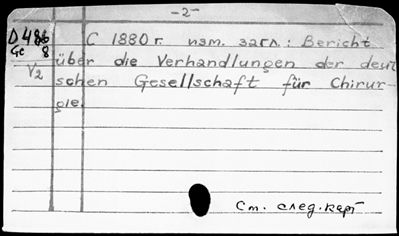 -2-
D 486 С 1880 г. изм. загл.: Bericht
Ge 8
V2 über die Verhandlungen der deut
schen Gesellschaft für Chirur-
gie.
См. след. карт